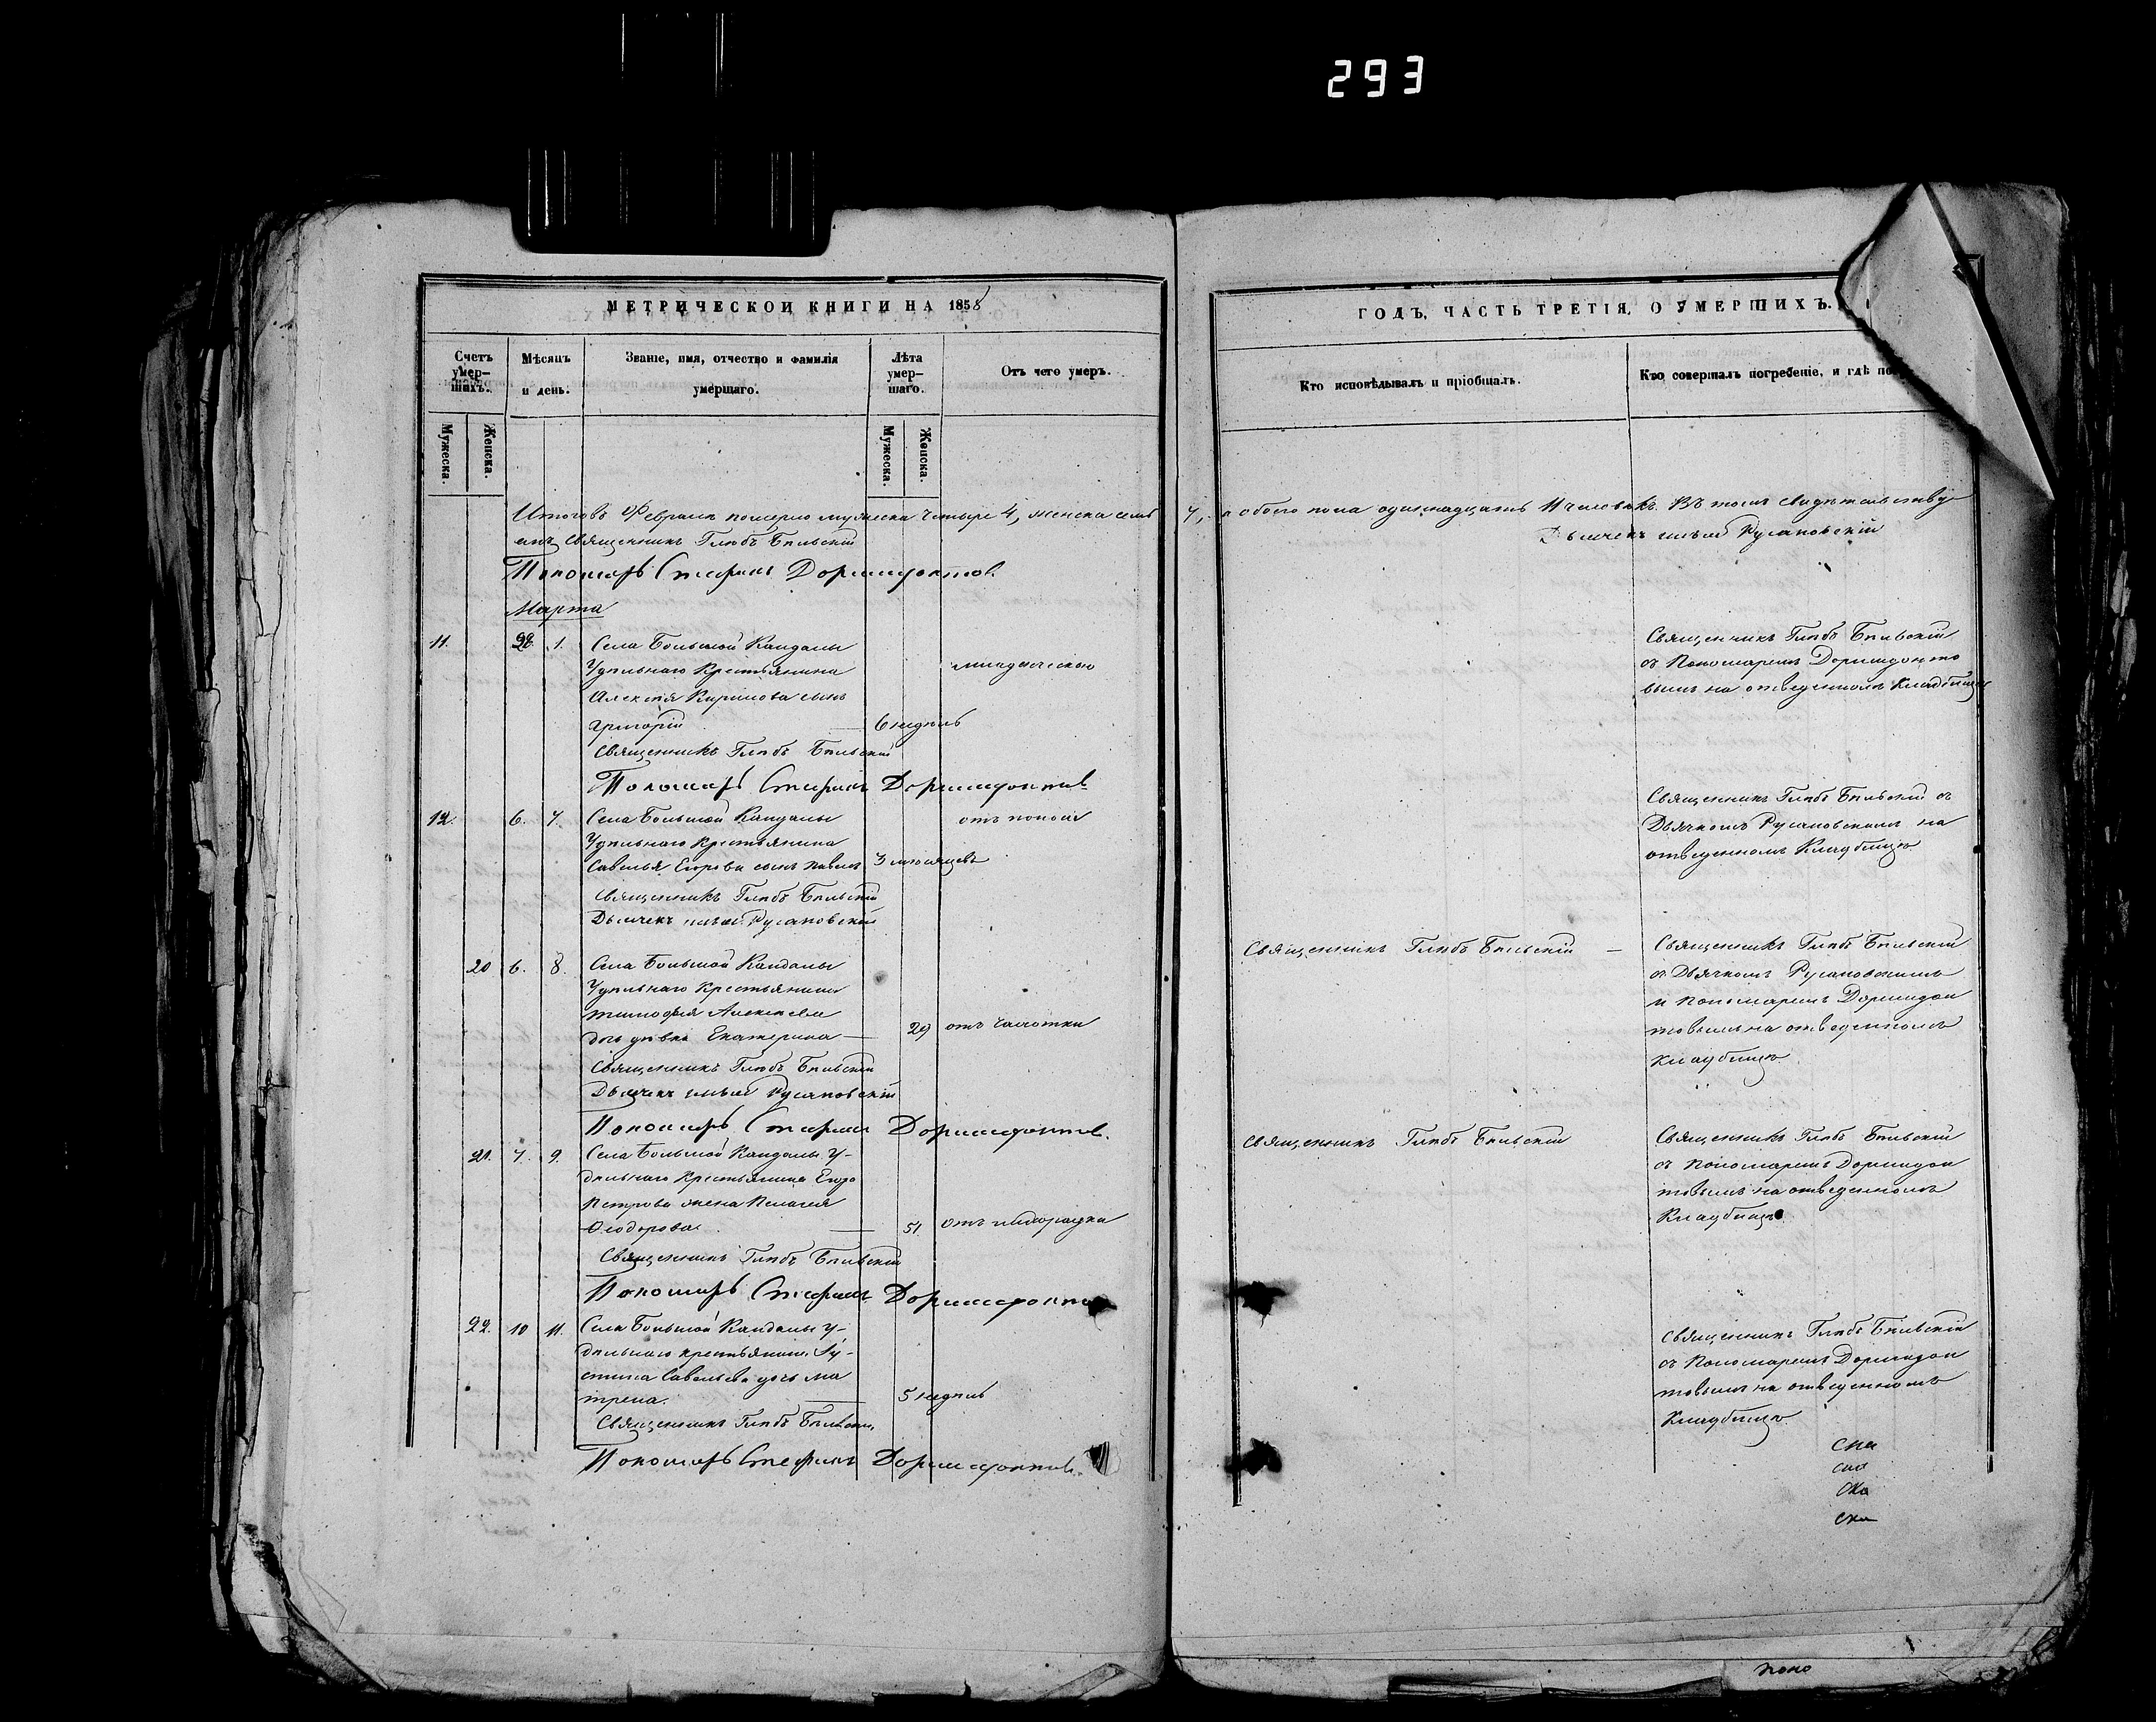 293
МЕТРИЧЕСКОЙ КНИГИ НА 1858
ГОДЪ, ЧАСТЬ ТРЕТІЯ, О УМЕРШИХЪ.
Счетъ умер-
шихъ.
Мѣсяцъ
и день.
Званіе, имя, отчество и фамилія
умершаго.
Лѣта
умер-
шаго.
Отъ чего умеръ.
Кто исповѣдывалъ и пріобщалъ.
Кто совершалъ погребеніе, и гдѣ по
Мужеска.
Женска.
Мужеска.
Женска.
Итого въ Февралѣ померло мужеска четыре 4, женска семь 7, а обоего пола одиннадцать 11 человѣкъ. Въ томъ свидѣтельству-
емъ Священникъ Глѣбъ Бѣльскій
Дьячекъ Русановскій
Пономарь Стефанъ Доримедонтовъ.
Марта
11. 28. 1. Села Большой Кандалы
Удѣльнаго Крестьянина
Алексѣя Кирилова сынъ
Григорій 6 недѣль
младенческою
Священникъ Глѣбъ Бѣльскій
съ Пономаремъ Доримедонто
вымъ на отведенномъ Кладбищѣ
Священникъ Глѣбъ Бѣльскій
Пономарь Стефанъ Доримедонтовъ
12. 6. 7. Села Большой Кандалы
Удѣльнаго Крестьянина
Савелья Егорова сынъ Павелъ 3 мѣсяцевъ
отъ поноса
Священникъ Глѣбъ Бѣльскій съ
Дьячкомъ Русановскимъ на
отведенномъ Кладбищѣ
Священникъ Глѣбъ Бѣльскій
Дьячекъ Русановскій
20 6. 8. Села Большой Кандалы
Удѣльнаго Крестьянина
Тимофея Алексѣева
дочь дѣвка Екатерина — 29 отъ чахотки
Священникъ Глѣбъ Бѣльскій —
Священникъ Глѣбъ Бѣльскій
съ Дьячкомъ Русановскимъ
и Пономаремъ Доримедон
товымъ на отведенномъ
кладбищѣ
Священникъ Глѣбъ Бѣльскій
Дьячекъ Русановскій
Пономарь Стефанъ Доримедонтовъ.
21. 7. 9. Села Большой Кандалы У-
дѣльнаго Крестьянина Егора
Петрова жена Пелагея
Ѳеодорова — 51. отъ лихорадки
Священникъ Глѣбъ Бѣльскій
Священникъ Глѣбъ Бѣльскій
съ Пономаремъ Доримедон
товымъ на отведенномъ
Кладбищѣ
Священникъ Глѣбъ Бѣльскій
Пономарь Стефанъ Доримедонтовъ
22. 10 11. Села Большой Кандалы У-
дѣльнаго крестьянина Іу-
стина Савельева дочь Ма
трена. 5 недѣль
Священникъ Глѣбъ Бѣльскій
съ Пономаремъ Доримедон
товымъ на отведенномъ
Кладбищѣ
Священникъ Глѣбъ Бѣльскій
Пономарь Стефанъ Доримедонтовъ.
поно